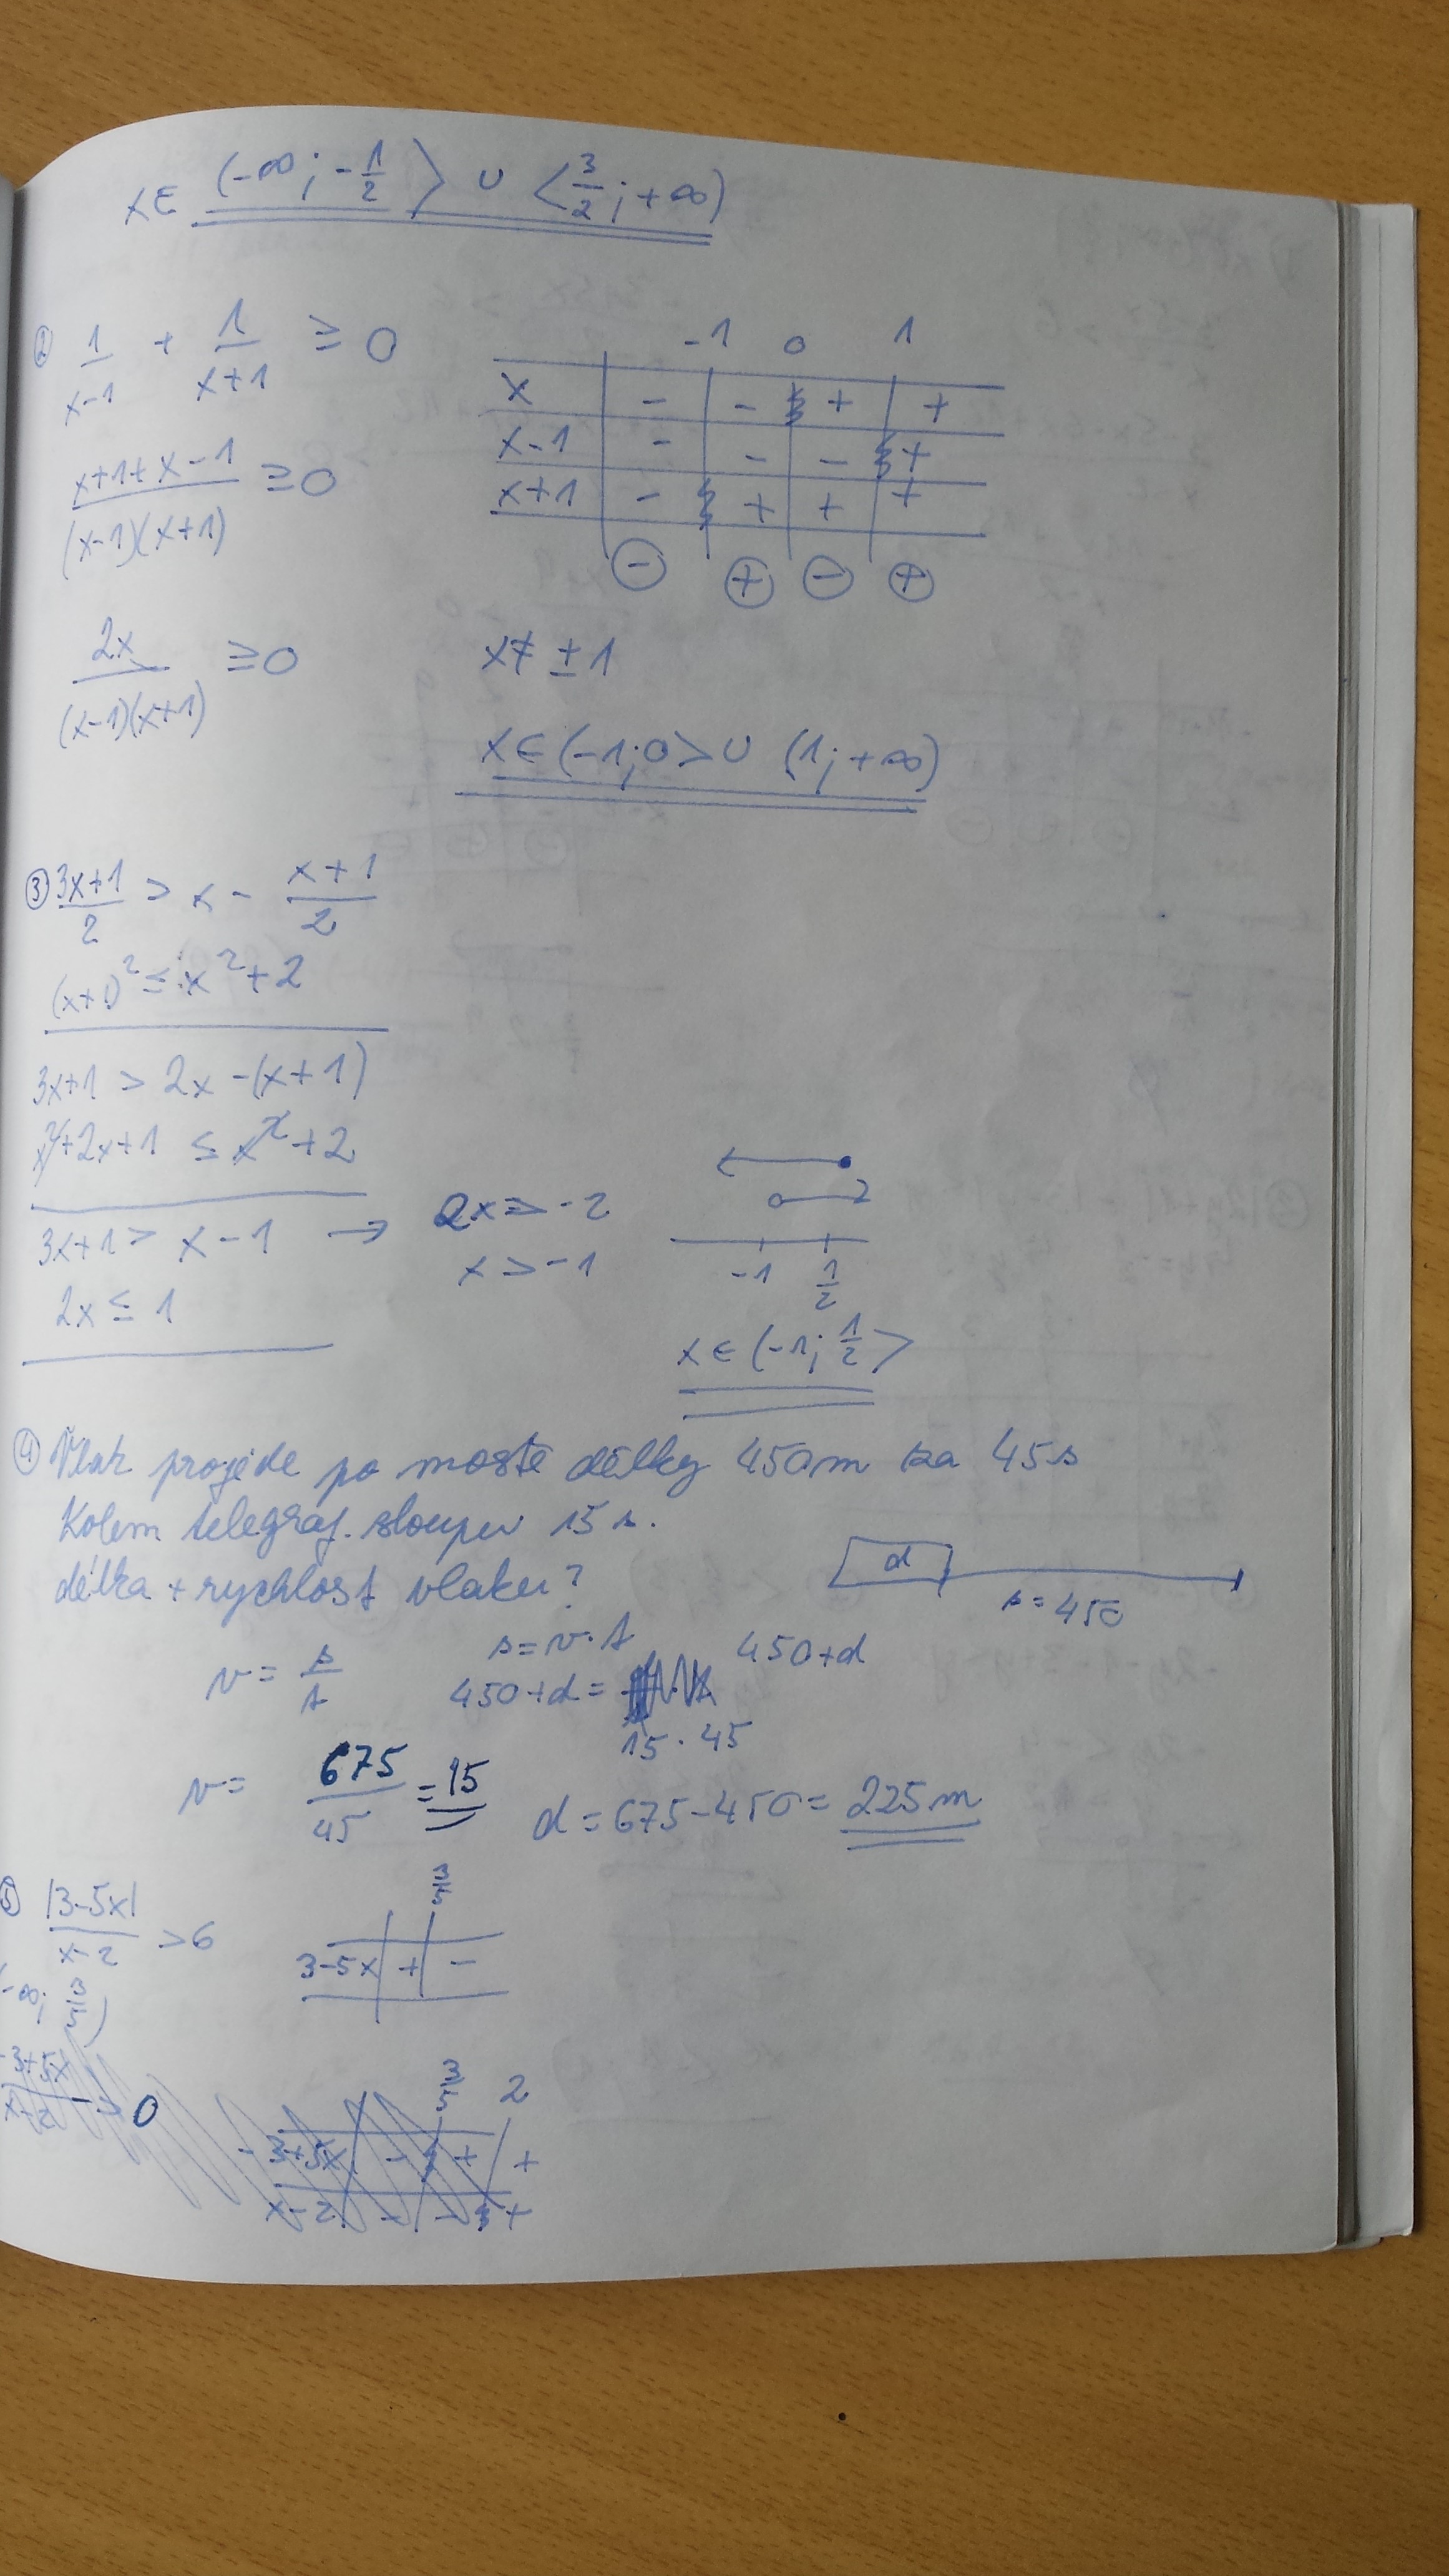 x∈ (-∞; -1/2 > ∪ < 3/2; +∞)
② 1/(x-1) + 1/(x+1) ≥ 0
-1 0 1
x - - + +
x-1 - - - +
x+1 - + + +
⊖ ⊕ ⊖ ⊕
(x+1+x-1)/((x-1)(x+1)) ≥ 0
2x/((x-1)(x+1)) ≥ 0
x ≠ ±1
x∈(-1; 0> ∪ (1; +∞)
③ (3x+1)/2 > x - (x+1)/2
(x+1)² ≤ x² + 2
3x+1 > 2x -(x+1)
x²+2x+1 ≤ x²+2
3x+1 > x-1 → 2x > -2
x > -1
2x ≤ 1
-1 1/2
x∈(-1; 1/2>
④ Vlak projede po mostě délky 450m za 45s
Kolem telegraf. sloupu 15 s.
délka + rychlost vlaku?
d
s = 450
v = s/t
s = v·t
450+d
450+d =
15·45
v = 675/45 = 15
d = 675-450 = 225m
⑤ |3-5x|/(x-2) > 6
3/5
3-5x + -
-∞; 3/5)
-3+5x/(x-2) > 0
3/5 2
-3+5x - + +
x-2 - - +